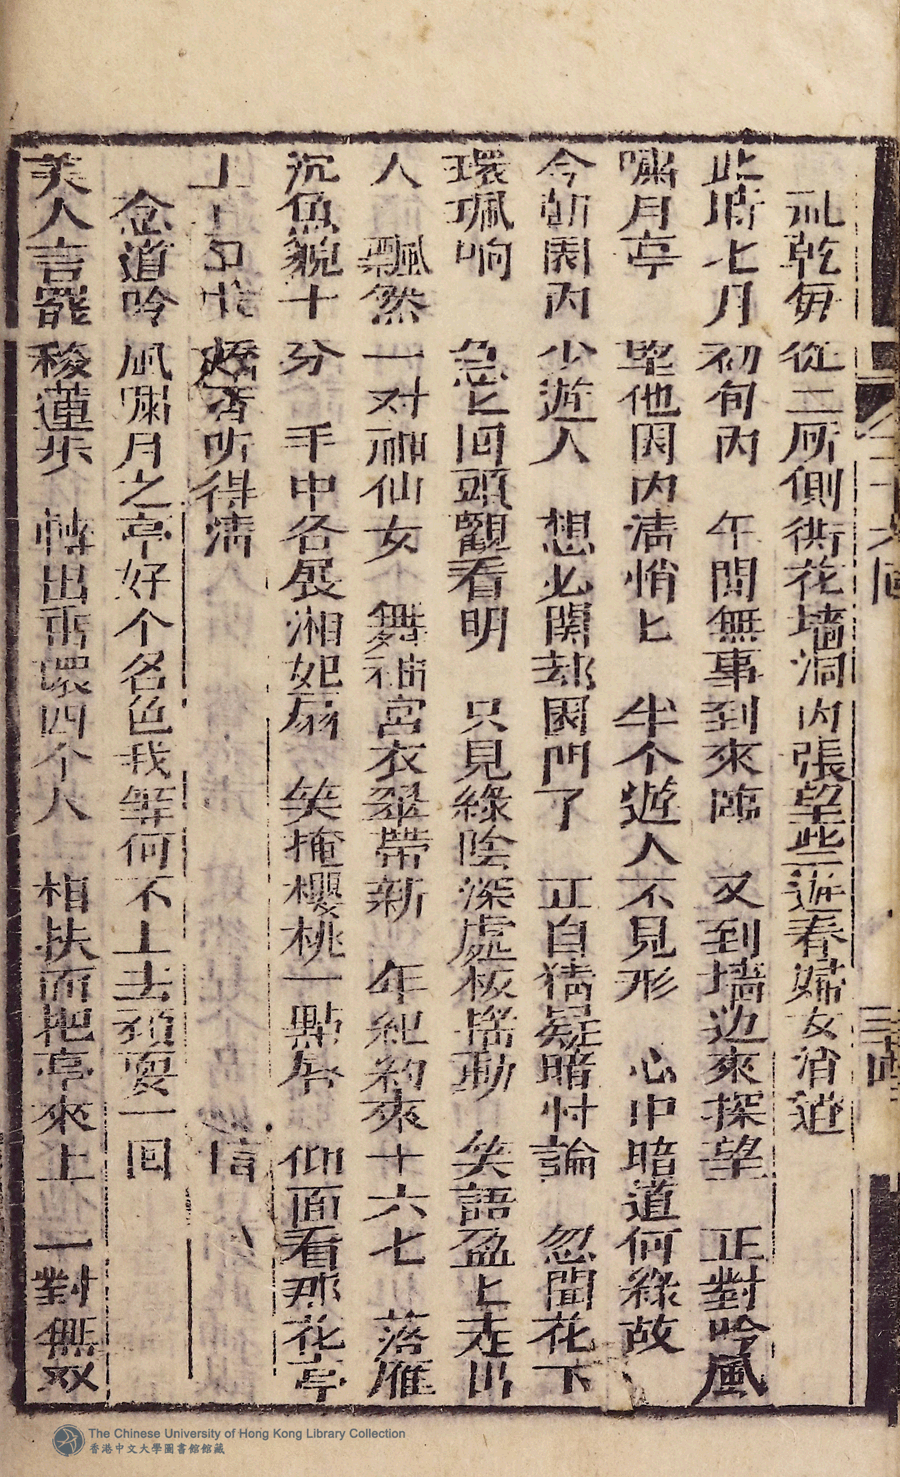 乾每從二所側街花墙洞内張望些遊春婦女消遣
此時七月初旬内 午間無事到來臨 又到墙边來探望 正對吟風
嘯月亭 望他园内清悄匕 半个遊人不見形 心中暗道何緣故
今朝园内少遊人 想必関却园門了 正自猜疑暗忖論 忽聞花下
環珮响 急匕回頭觀看明 只見綠陰深處板搖動 笑語盈匕走出
人 飄然一对神仙女 舞袖宮衣翠帶新 年紀約來十六七 落雁
沉魚貌十分 手中各展湘妃扇 笑掩櫻桃一點唇 仰面看那花亭
上 听得清
念道吟風嘯月之亭好个名色我等何不上去頑耍一回
美人言罷移蓮步 轉出丫環四个人 相扶而把亭來上 一對無双
The Chinese University of Hong Kong Library Collection
香港中文大學圖書館館藏